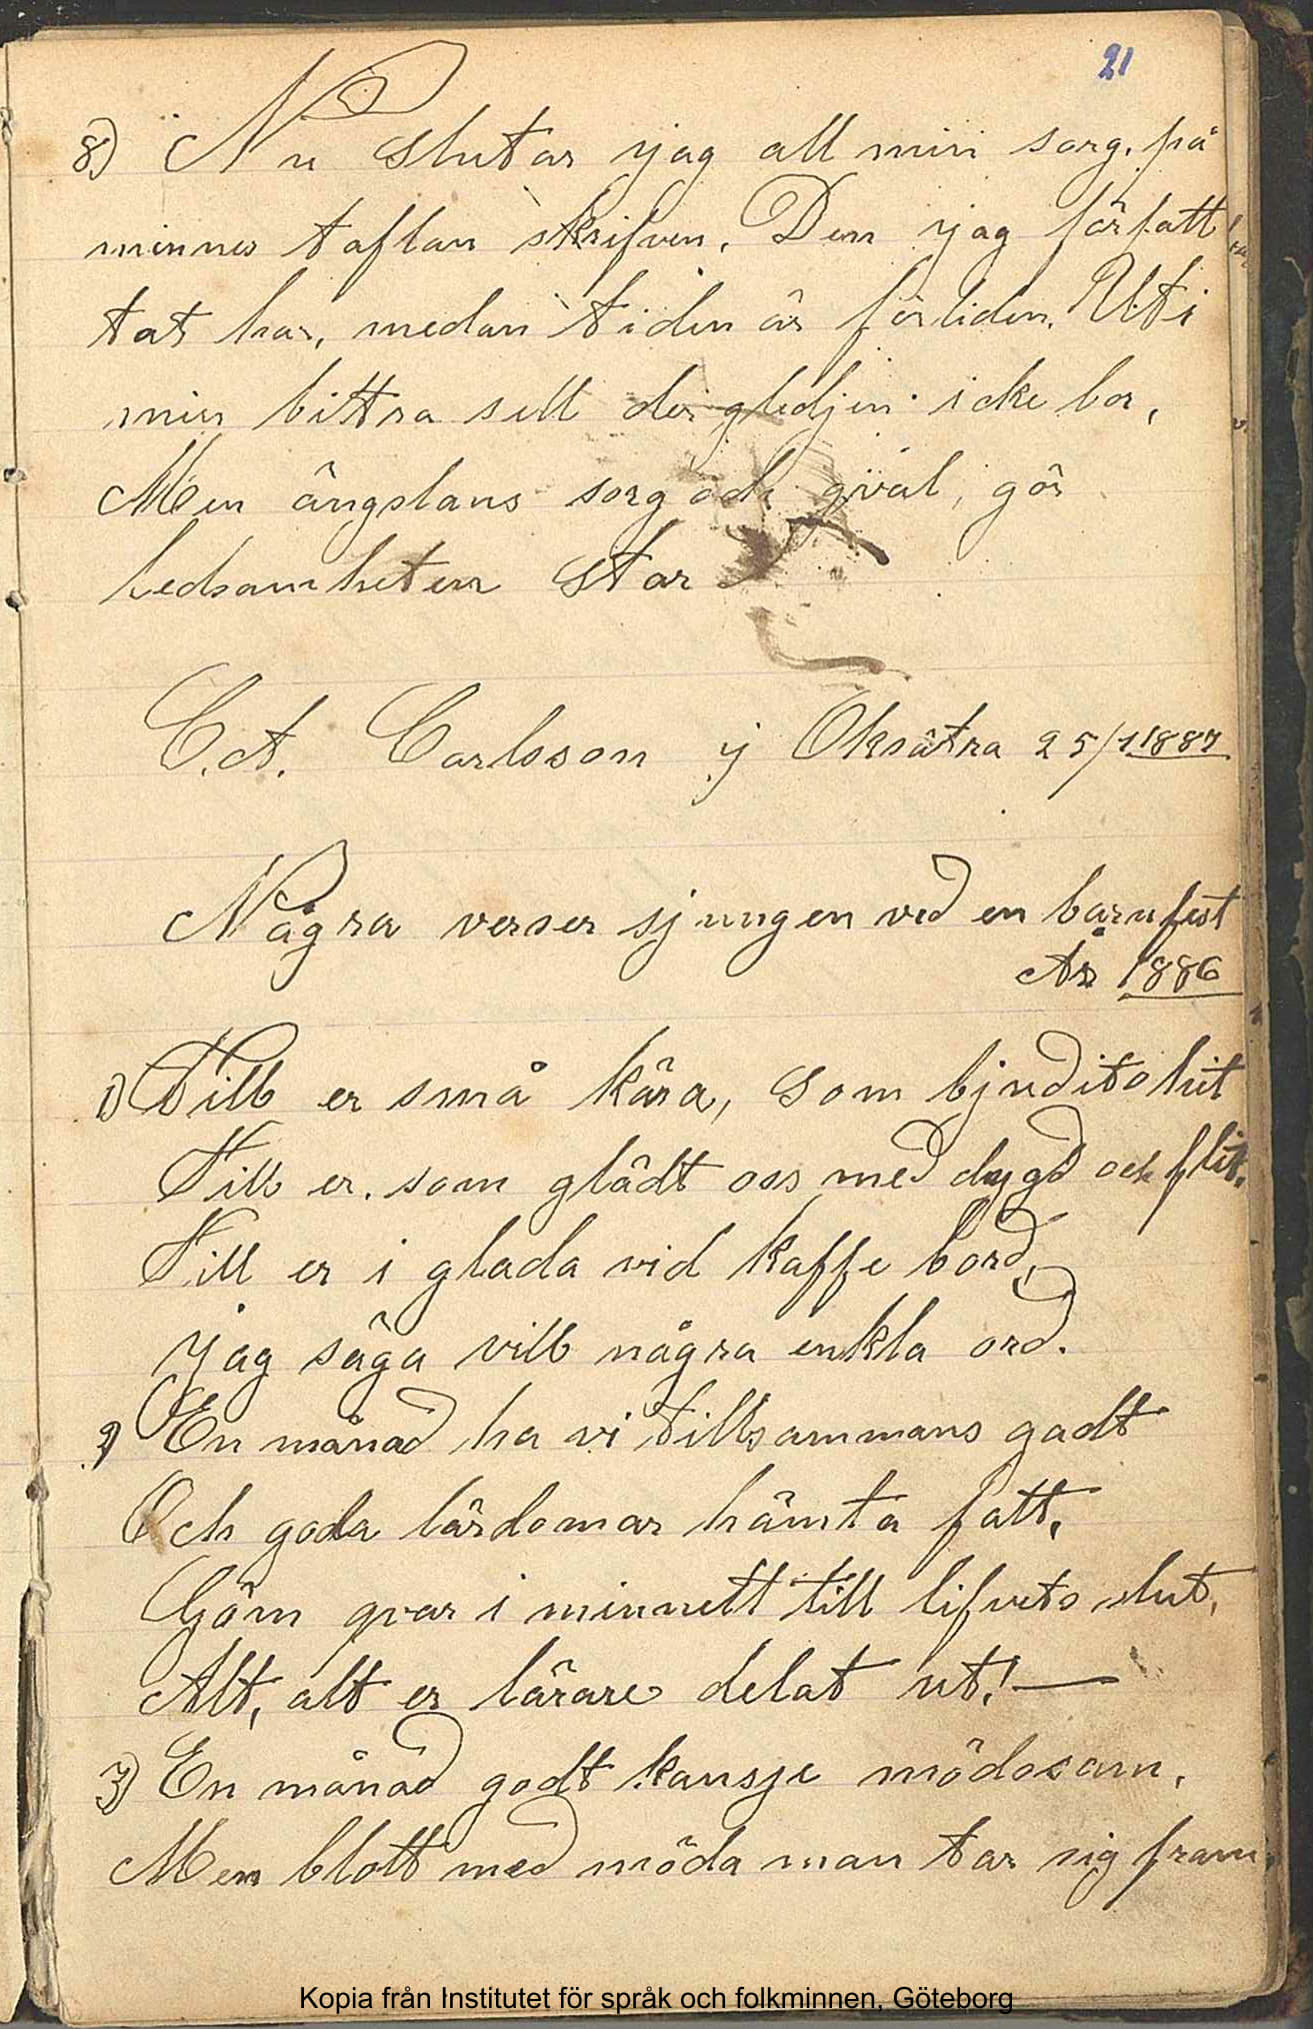 21
8) Nu slutar jag all min sorg, på
minnes taflan skrifven. Den jag författ
tat har, medan tiden är förliden. Uti
min bittra sell der gledjen icke bor,
Men ängslans sorg och qväl, gör
ledsamheten stor
C. A. Carlsson ij Oksätra 25/1 1887
Några verser sjungen ved en barnfest
År 1886
1) Till er små kära, som bjudits hit
Till er. som glädt oss med dygd och flit.
Till er i glada vid kaffe bord,
jag säga vill några enkla ord.
2) En månad ha vi tillsammans gadt
Och goda lärdomar hämta fått,
Göm qvar i minnett till lifvets slut,
Alt, alt er lärare delat ut! —
3) En månad godt kansje mödosam,
Men blott med möda man tar sig fram
Kopia från Institutet för språk och folkminnen, Göteborg